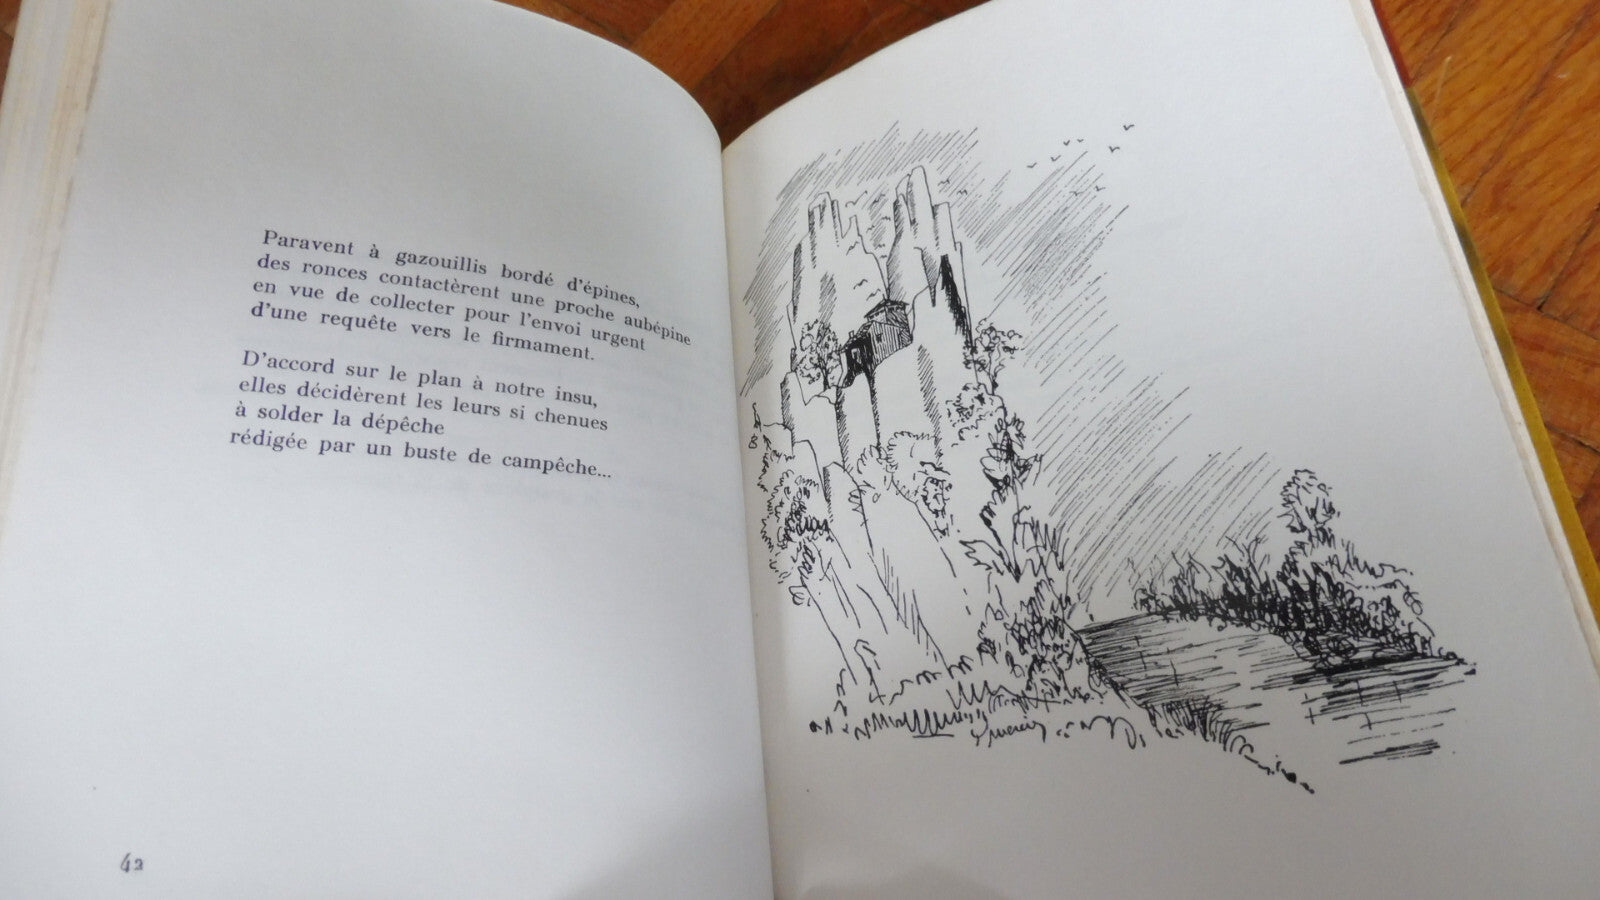 Paravent à gazouillis bordé d'épines,
des ronces contactèrent une proche aubépine
en vue de collecter pour l'envoi urgent
d'une requête vers le firmament.
D'accord sur le plan à notre insu,
elles décidèrent les leurs si chenues
à solder la dépêche
rédigée par un buste de campêche...
42